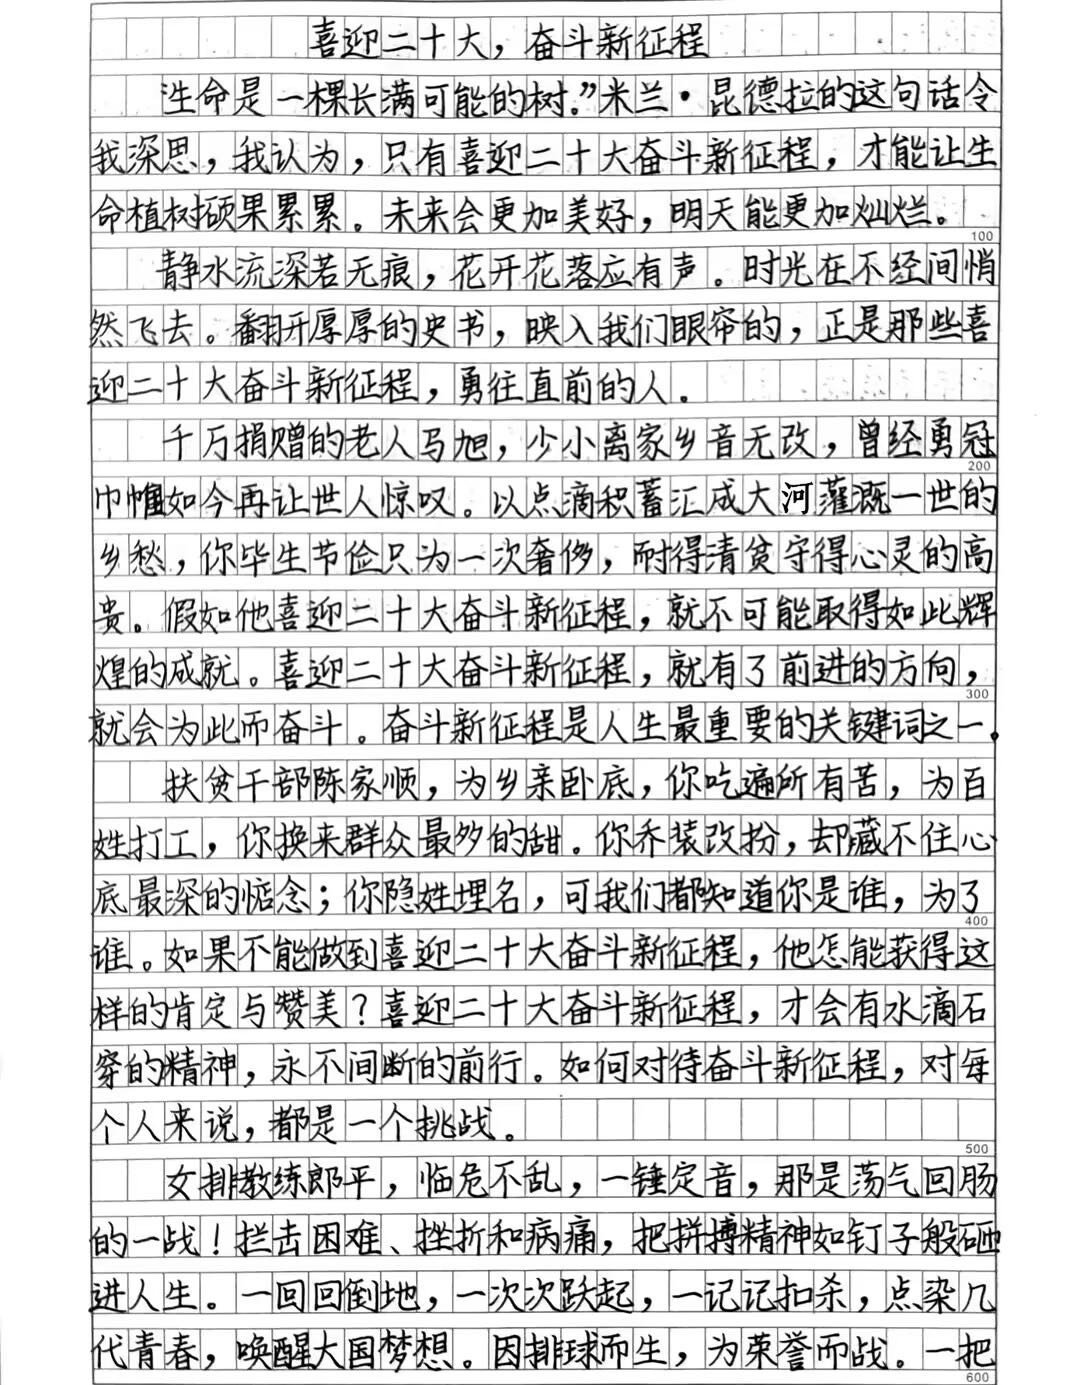 喜迎二十大，奋斗新征程
“生命是一棵长满可能的树。”米兰·昆德拉的这句话令
我深思，我认为，只有喜迎二十大奋斗新征程，才能让生
命植树硕果累累。未来会更加美好，明天能更加灿烂。
100
静水流深若无痕，花开花落应有声。时光在不经间悄
然飞去。翻开厚厚的史书，映入我们眼帘的，正是那些喜
迎二十大奋斗新征程，勇往直前的人。
千万捐赠的老人马旭，少小离家乡音无改，曾经勇冠
200
巾帼如今再让世人惊叹。以点滴积蓄汇成大河灌溉一世的
乡愁，你毕生节俭只为一次奢侈，耐得清贫守得心灵的高
贵。假如他喜迎二十大奋斗新征程，就不可能取得如此辉
煌的成就。喜迎二十大奋斗新征程，就有了前进的方向，
300
就会为此而奋斗。奋斗新征程是人生最重要的关键词之一。
扶贫干部陈家顺，为乡亲卧底，你吃遍所有苦，为百
姓打工，你换来群众最多的甜。你乔装改扮，却藏不住心
底最深的惦念；你隐姓埋名，可我们都知道你是谁，为了
400
谁。如果不能做到喜迎二十大奋斗新征程，他怎能获得这
样的肯定与赞美？喜迎二十大奋斗新征程，才会有水滴石
穿的精神，永不间断的前行。如何对待奋斗新征程，对每
个人来说，都是一个挑战。
500
女排教练郎平，临危不乱，一锤定音，那是荡气回肠
的一战！拦击困难、挫折和病痛，把拼搏精神如钉子般砸
进人生。一回回倒地，一次次跃起，一记记扣杀，点染几
代青春，唤醒大国梦想。因排球而生，为荣誉而战。一把
600